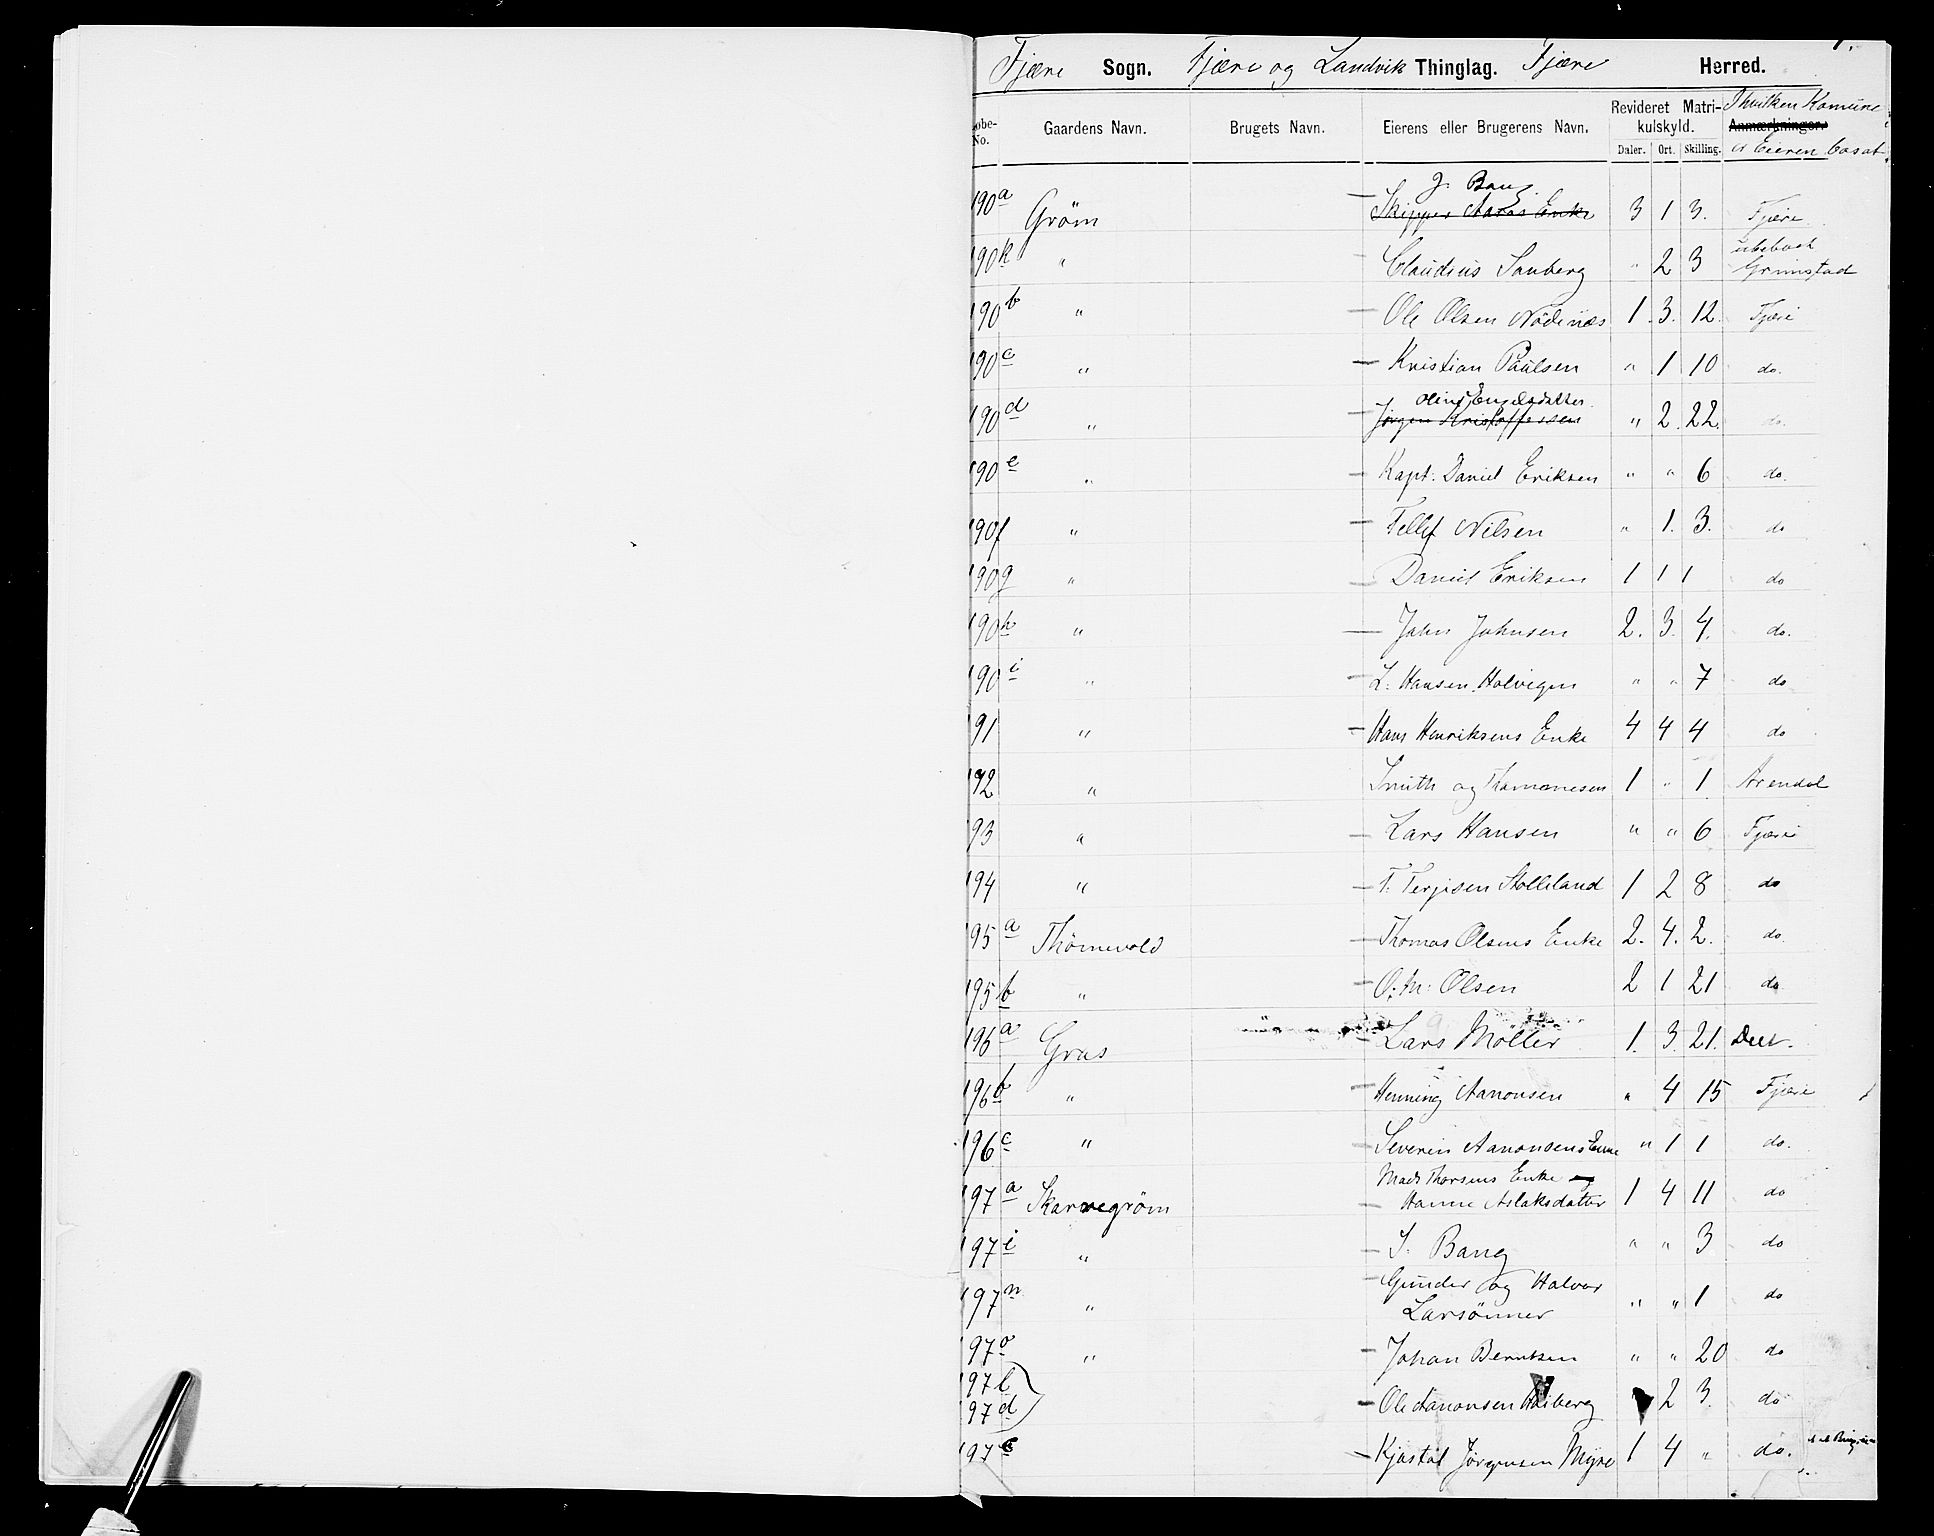 Fjære Sogn. Fjære og Landvik Thinglag. Fjære Herred.
Løbe-No. Gaardens Navn. Brugets Navn. Eierens eller Brugerens Navn. Revideret Matrikulskyld. Daler. Ort. Skilling. Anmærkninger. I hvilken Komune er Eieren bosat
J. Bang
190a Gröm Skipper Aanas Enke 3 1 3. Fjære
190k " Claudius Sanberg " 2 3 ubeboet Grimstad
190b " Ole Olsen Nödenæs 1. 3. 12. Fjære
190c " Kristian Paulsen " 1 10 do.
Oline Engelsdatter
190d " Jörgen Kristoffersen " 2. 22. do.
190e " Kapt. Daniel Eriksen " " 6 do.
190f " Tellef Nilsen " 1. 3. do
190g " Daniel Eriksen 1 1 1 do
190h " John Johnsen 2. 3. 4. do.
190i " L. Hansen Holvigen " " 7 do
191 " Hans Henriksens Enke 4 4 4 do
192 " Smith og Thommesen 1 " 1 Arendal
193 " Lars Hansen " " 6 Fjære
194 " T. Terjesen Stölleland 1 2 8 do
195a Thömevold Thomas Olsens Enke 2. 4. 2. do
195b " O. M. Olsen 2 1 21 do
196a Gros Lars Möller 1. 3. 21. Do
196b " Henning Aanonsen " 4 15 Fjære
196c " Severin Aanonsens Enke " 1 1 do.
Mads Thorsens Enke og
197a Skarvegröm Hanne Aslaksdatter 1 4 11 do
197i " J. Bang " " 3 do
197n " Gunder og Halvor " " 1 do
Larsönner
197o " Johan Berntsen " " 20 do
197l
197d Ole Aanonsen Aasberg " 2 3. do
197e Kjöstöl Jörgensen Myre 1 4 " do.